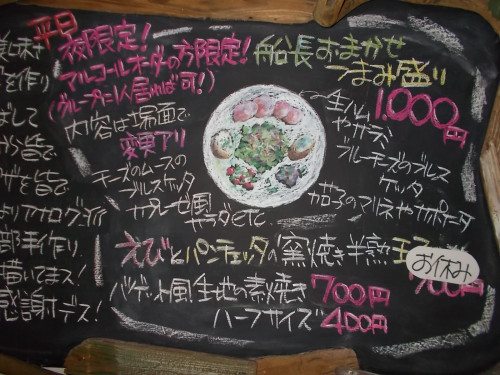 平日
夜限定!
アルコールオーダーの方限定!
(グループに1人居れば可!)
内容は場面で
変更アリ
チーズのムースの
ブルスケッタ
カプレーゼ風
サラダetc
船長おまかせ
つまみ盛り
1,000円
生ハム
やサラミ
ブルーチーズのブルス
ケッタ
茄子のマリネやカポナータ
えびとパンチェッタの窯焼き半熟玉子
700円
お休み
バゲット風生地の素焼き 700円
ハーフサイズ 400円
を作り
ばして
から皆で
ザを皆で
よりアナログンイ
部手作り
描いてまス!
感謝デス!